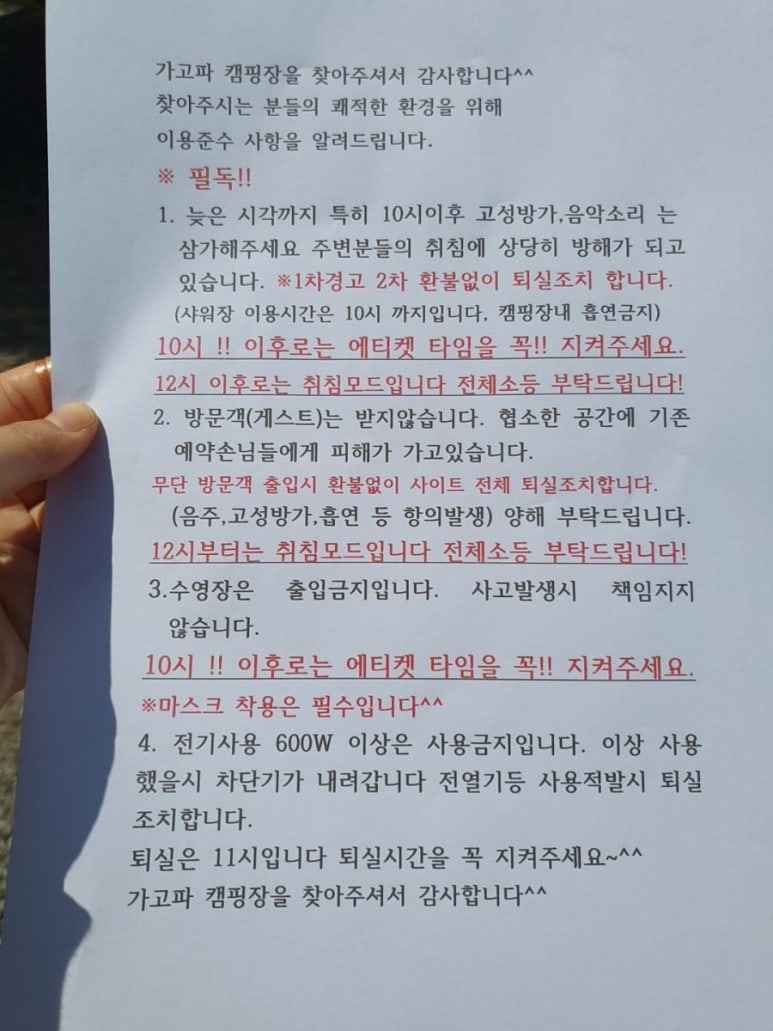 가고파 캠핑장을 찾아주셔서 감사합니다^^
찾아주시는 분들의 쾌적한 환경을 위해
이용준수 사항을 알려드립니다.
※ 필독!!
1. 늦은 시각까지 특히 10시이후 고성방가,음악소리 는
삼가해주세요 주변분들의 취침에 상당히 방해가 되고
있습니다. ※1차경고 2차 환불없이 퇴실조치 합니다.
(샤워장 이용시간은 10시 까지입니다, 캠핑장내 흡연금지)
10시 !! 이후로는 에티켓 타임을 꼭!! 지켜주세요.
12시 이후로는 취침모드입니다 전체소등 부탁드립니다!
2. 방문객(게스트)는 받지않습니다. 협소한 공간에 기존
예약손님들에게 피해가 가고있습니다.
무단 방문객 출입시 환불없이 사이트 전체 퇴실조치합니다.
(음주,고성방가,흡연 등 항의발생) 양해 부탁드립니다.
12시부터는 취침모드입니다 전체소등 부탁드립니다!
3.수영장은 출입금지입니다. 사고발생시 책임지지
않습니다.
10시 !! 이후로는 에티켓 타임을 꼭!! 지켜주세요.
※마스크 착용은 필수입니다^^
4. 전기사용 600W 이상은 사용금지입니다. 이상 사용
했을시 차단기가 내려갑니다 전열기등 사용적발시 퇴실
조치합니다.
퇴실은 11시입니다 퇴실시간을 꼭 지켜주세요~^^
가고파 캠핑장을 찾아주셔서 감사합니다^^